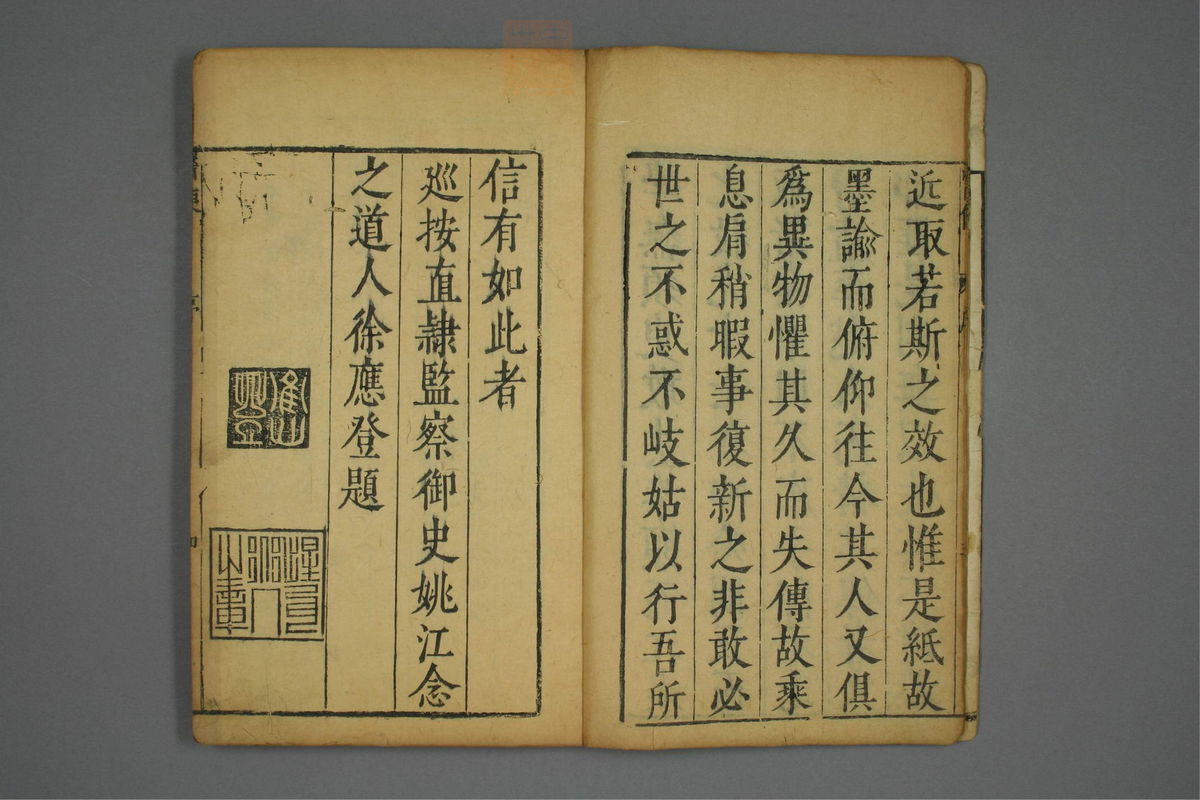 近取若斯之效也惟是紙故
墨諭而俯仰往今其人又俱
爲異物懼其久而失傳故乘
息肩稍暇事復新之非敢必
世之不惑不岐姑以行吾所
信有如此者
廵按直隸監察御史姚江念
之道人徐應登題